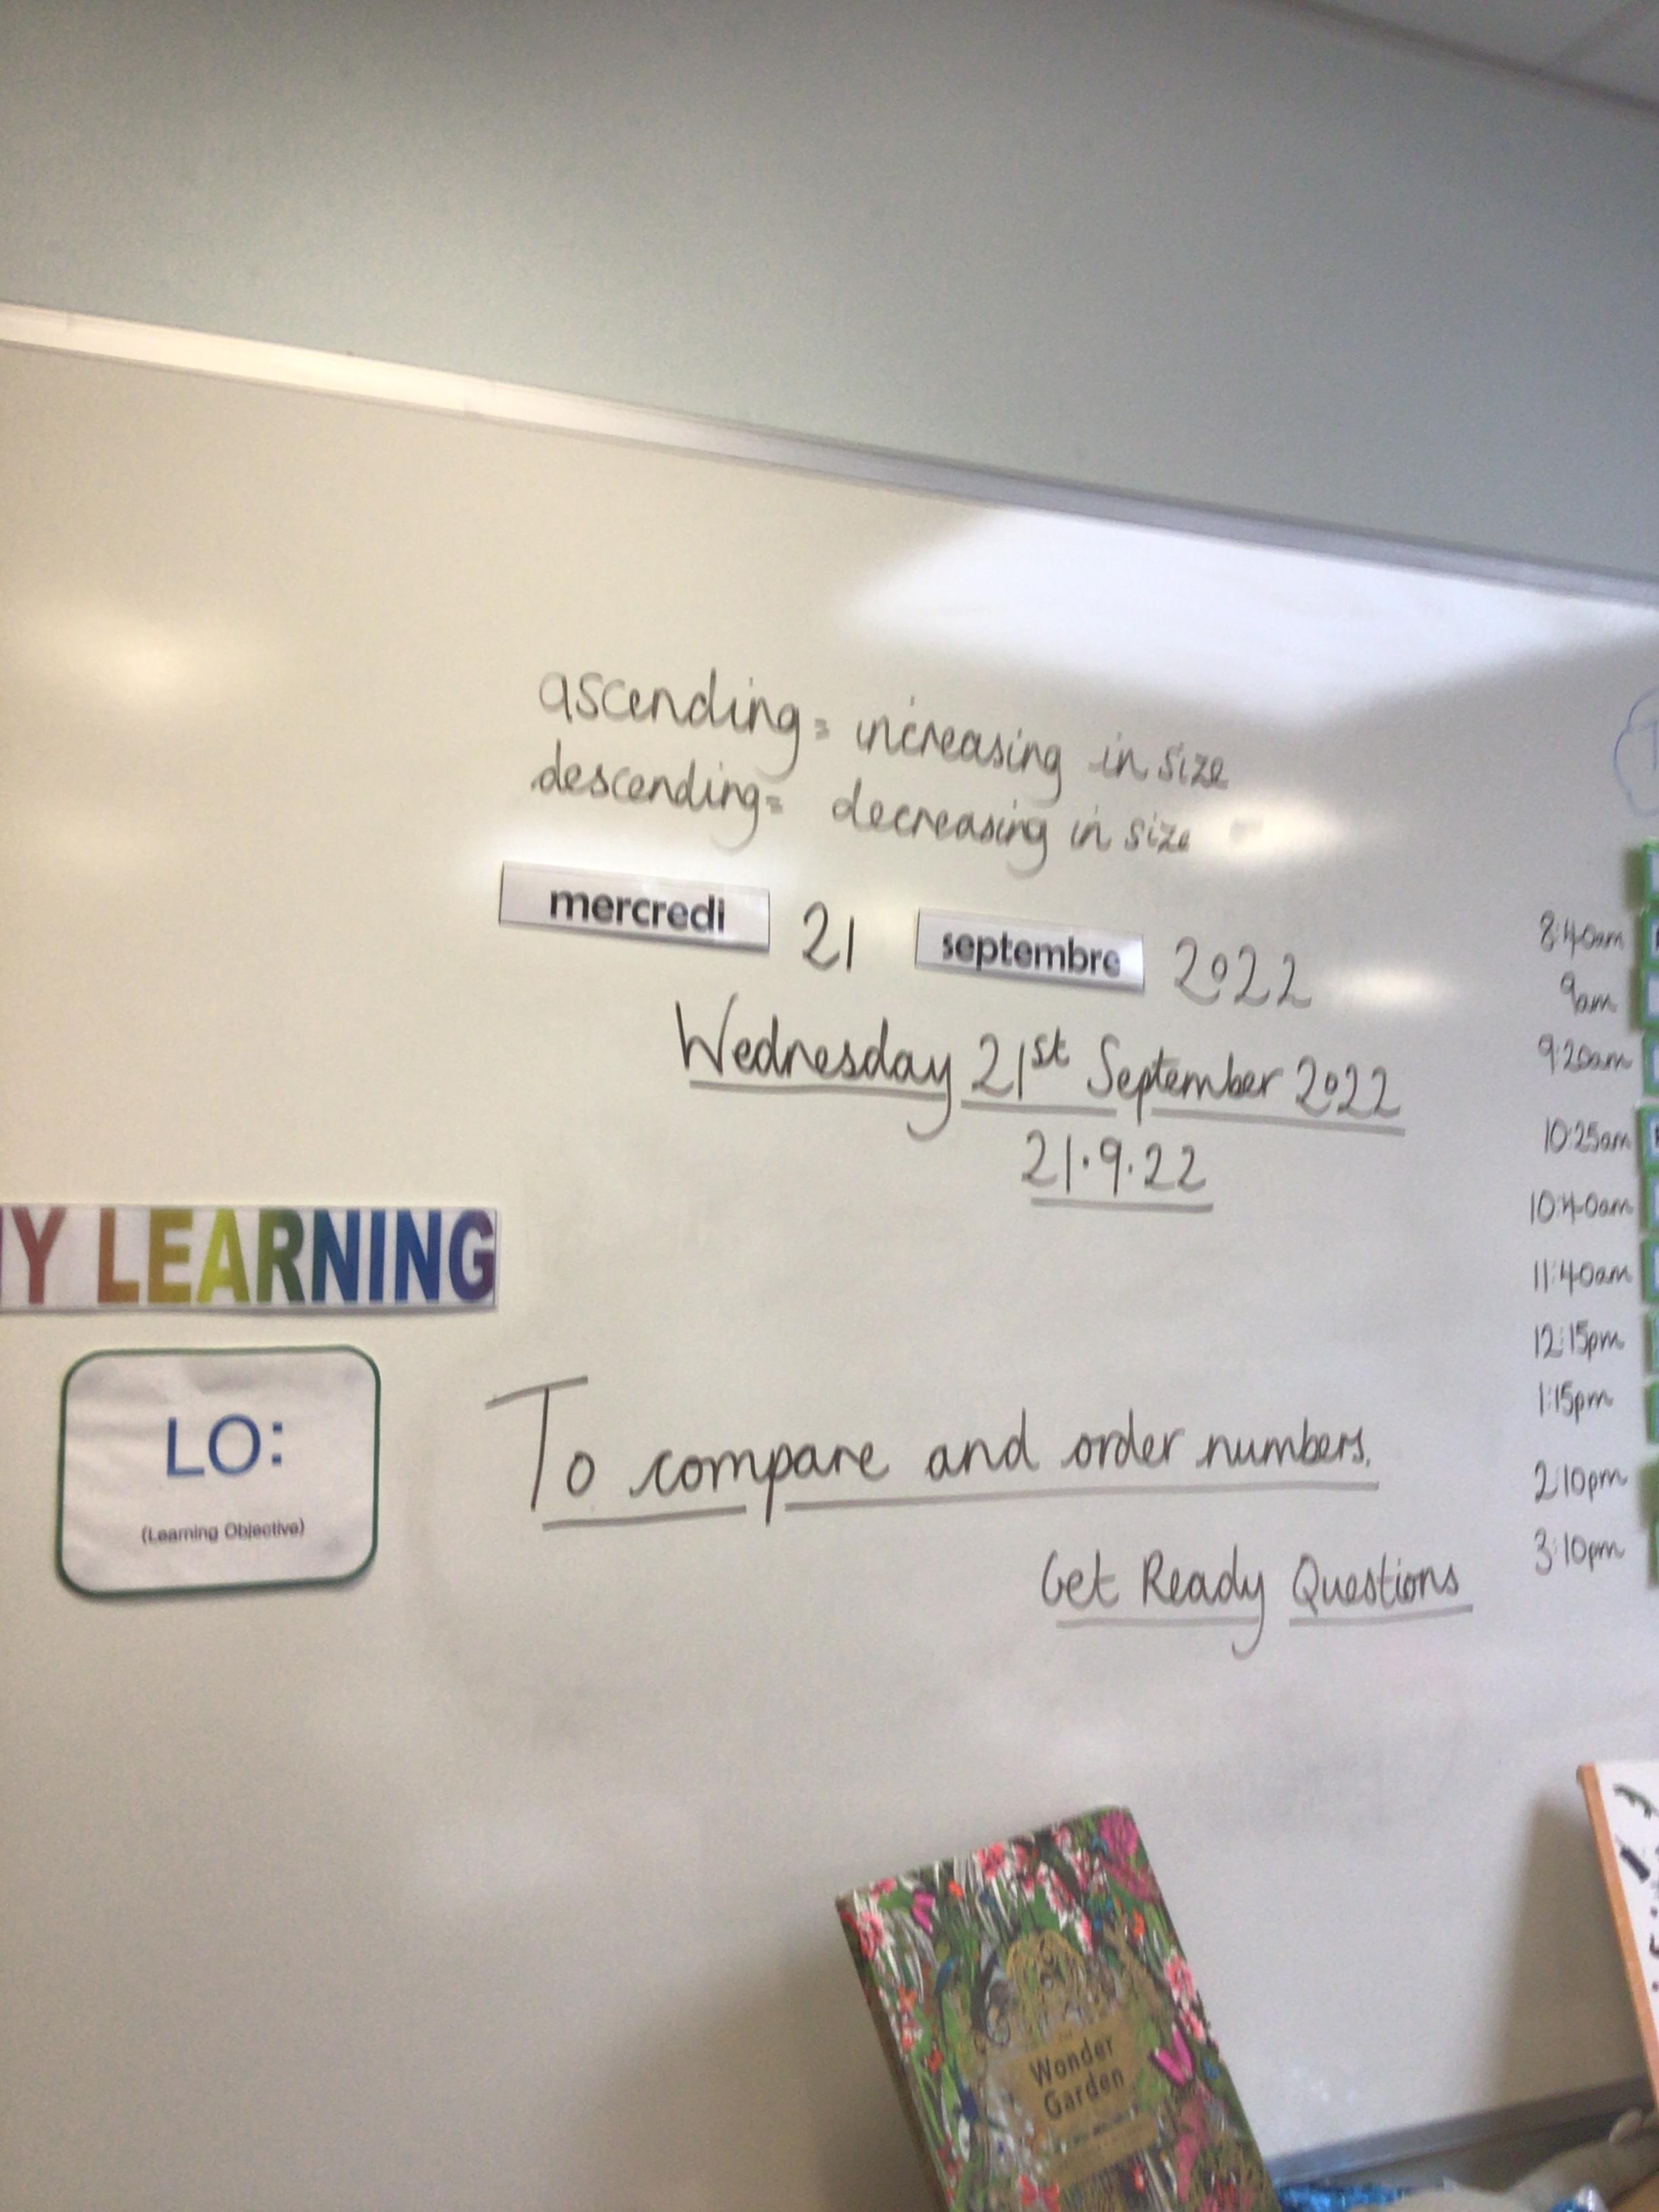 ascending = increasing in size
descending = decreasing in size
mercredi 21 septembre 2022
Wednesday 21st September 2022
21.9.22
Y LEARNING
LO:
(Learning Objective)
To compare and order numbers.
Get Ready Questions
8:40am
9am
9:20am
10:25am
10:40am
11:40am
12:15pm
1:15pm
2:10pm
3:10pm
Wonder
Garden